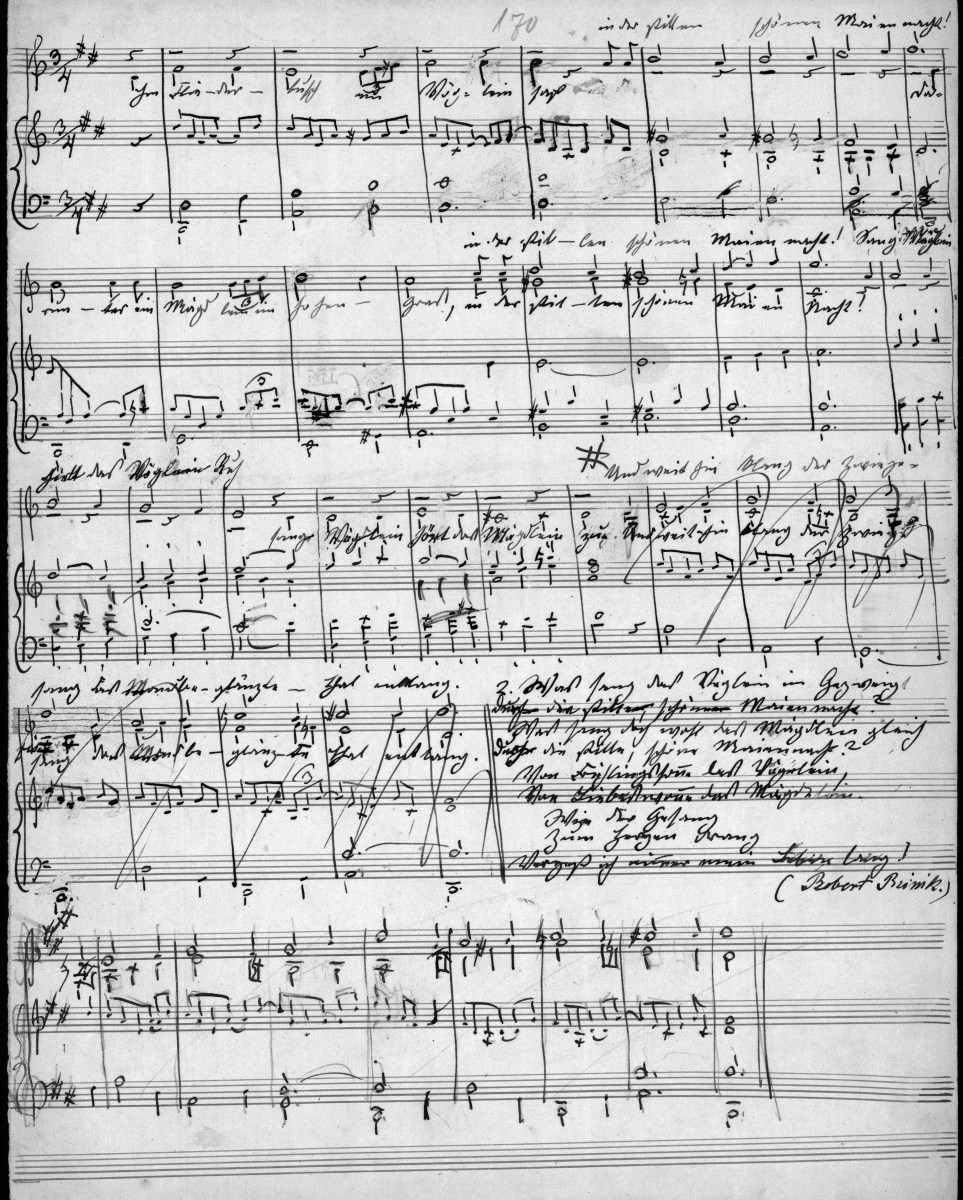 170
in der stillen schönen Maiennacht!
Im Flieder-busch ein Vög-lein saß Da-
in der stil-len schönen Maiennacht! Sang Mägdlein
drun-ter ein Mägdlein im hohen-Gras, in der stil-len schönen Maien Nacht!
hielt das Vöglein Ruh
# Und weit hin klang der Zwiege-
sang's Vöglein hört das Mägdlein zu. Und weithin klang der Zwiege
sang das Mondbe-glänzte-Thal entlang.
sang das Mondbe-glänzte Thal entlang.
2. Was sang das Vöglein im Gezweig
durch die stille schöne Maiennacht?
Was sang doch wohl das Mägdlein gleich
durch die stille, schöne Maiennacht?
Von Frühlingssonne das Vögelein,
Von Liebeswonne das Mägdelein.
Wie der Gesang
Zum Herzen drang
Vergeß ich nimmer mein Leben lang!
(Robert Reinik.)